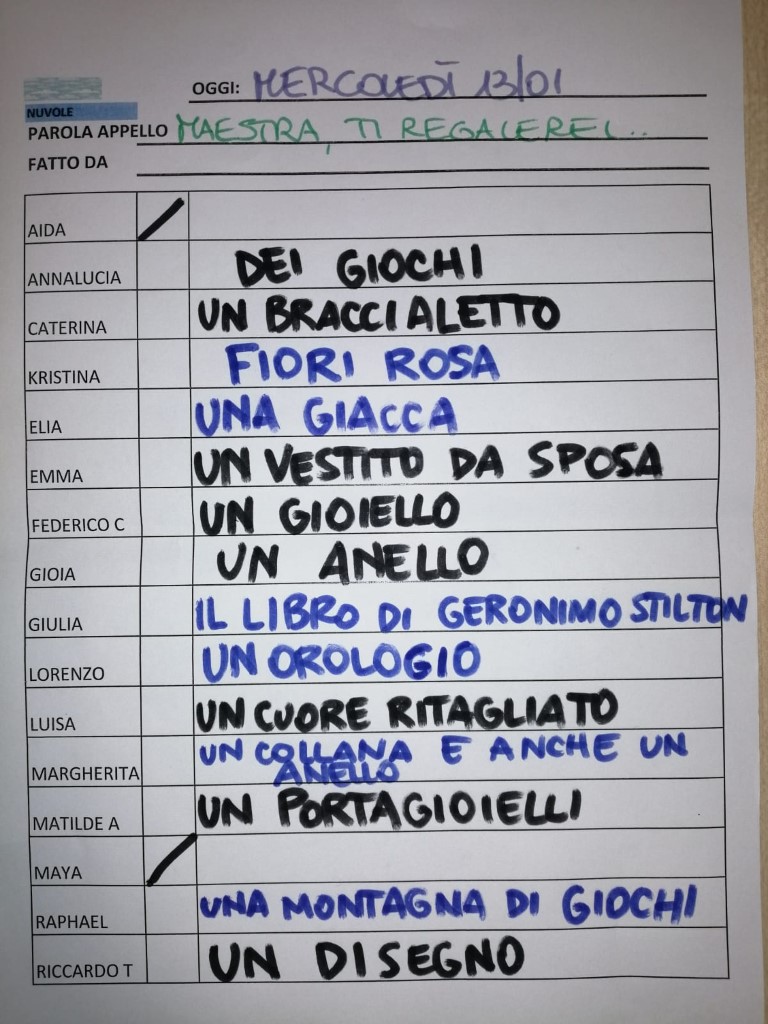 OGGI: MERCOLEDÌ 13/01
NUVOLE
PAROLA APPELLO MAESTRA, TI REGALEREI...
FATTO DA
AIDA
ANNALUCIA DEI GIOCHI
CATERINA UN BRACCIALETTO
KRISTINA FIORI ROSA
ELIA UNA GIACCA
EMMA UN VESTITO DA SPOSA
FEDERICO C UN GIOIELLO
GIOIA UN ANELLO
GIULIA IL LIBRO DI GERONIMO STILTON
LORENZO UN OROLOGIO
LUISA UN CUORE RITAGLIATO
MARGHERITA UN COLLANA E ANCHE UN
ANELLO
MATILDE A UN PORTAGIOIELLI
MAYA
RAPHAEL UNA MONTAGNA DI GIOCHI
RICCARDO T UN DISEGNO